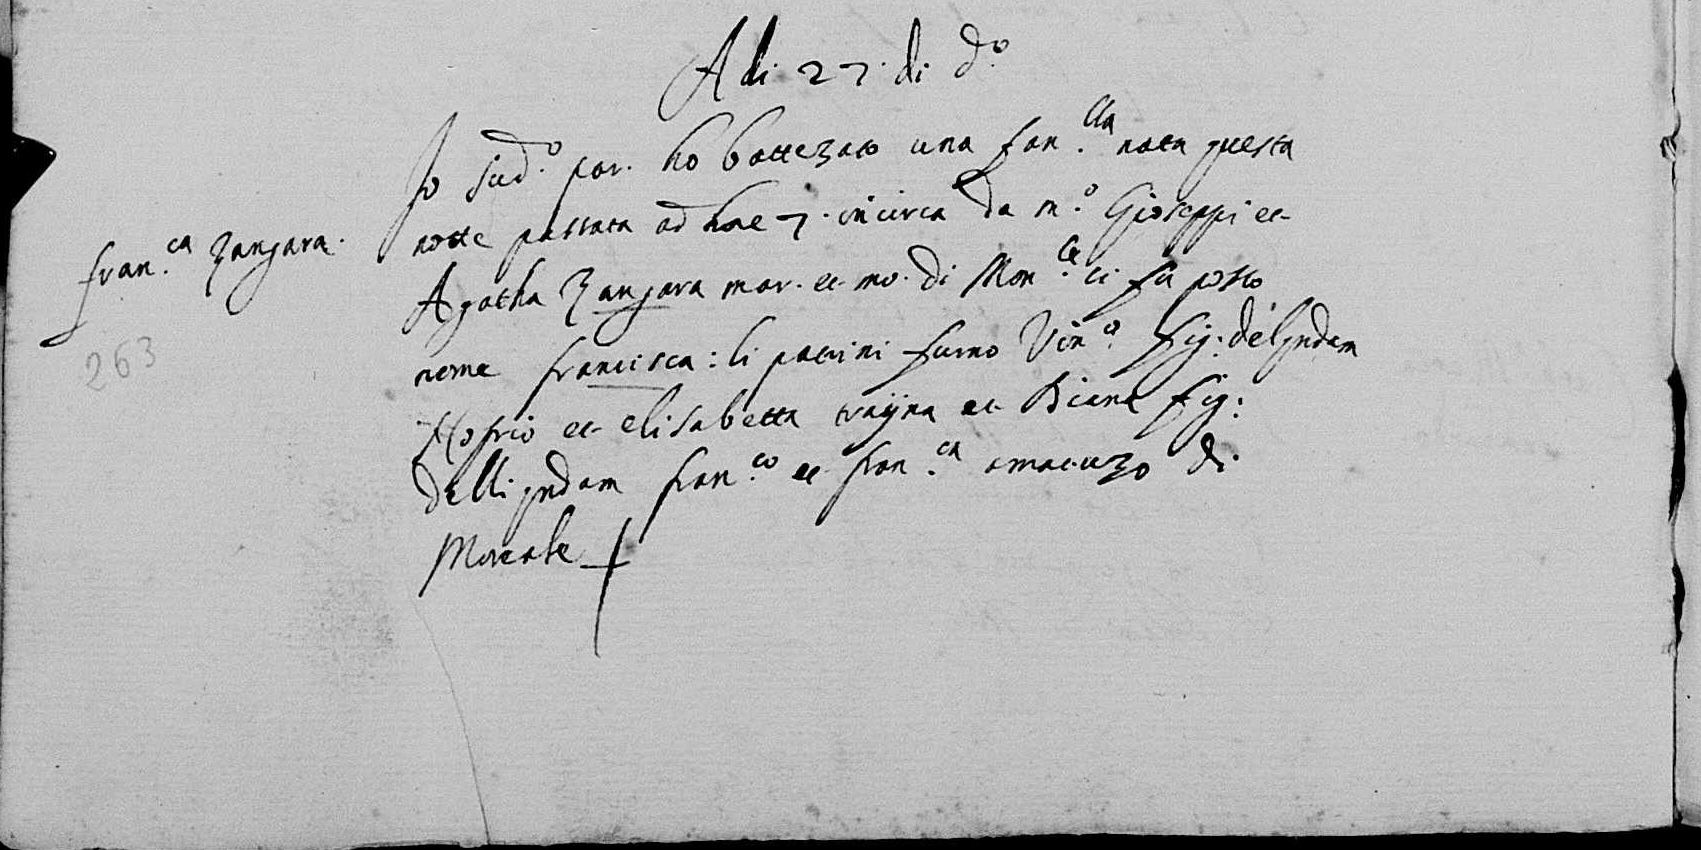 A di 27. di d.º
Io sud.º par. ho battezato una fan.lla nata questa
notte passata ad hore 7. in circa da m.º Gioseppi et
fran.ca Zangara. Agatha Zangara mar. et mo. di Mon.le ci fu posto
263 nome francisca: li patrini furno Vin.º fig: del qndam
Nofrio et elisabetta trayna et Diana fig:
delli qndam fran.co et fran.ca amatuzo di
Moreale